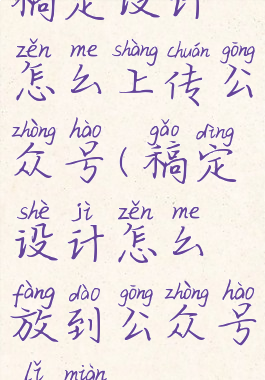 稿定设计
zěn me shàng chuán gōng
怎么上传公
zhòng hào gǎo dìng
众号(稿定
shè jì zěn me
设计怎么
fàng dào gōng zhòng hào
放到公众号
lǐ miàn